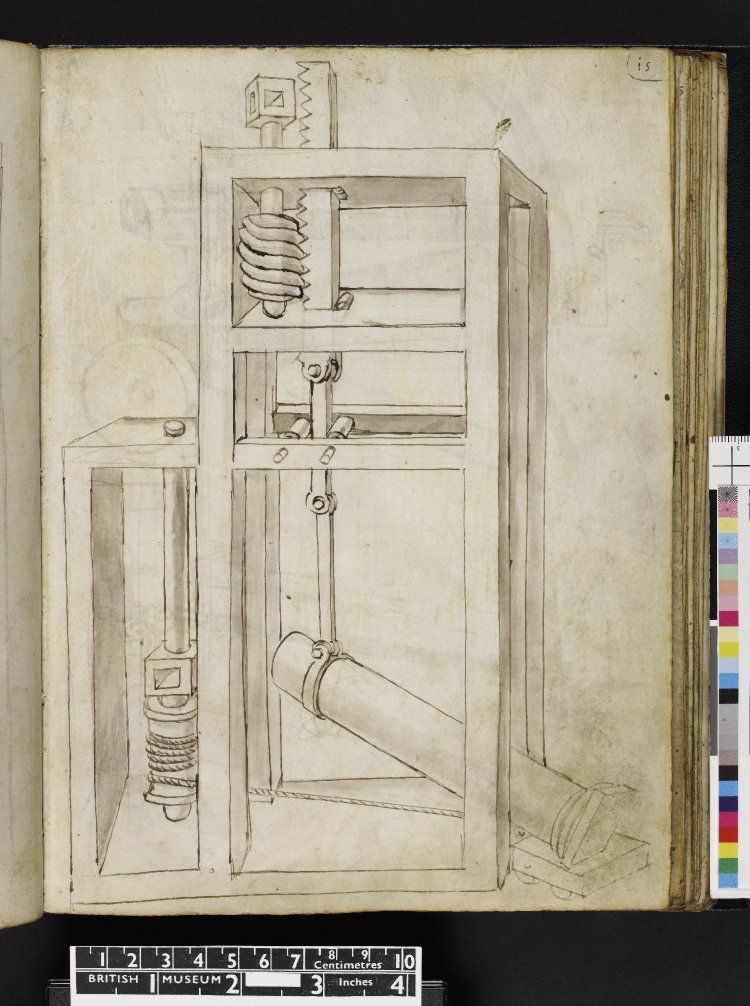 15
1 2 3 4 5 6 7 8 9 10
Centimetres
BRITISH 1 MUSEUM 2 3 Inches 4